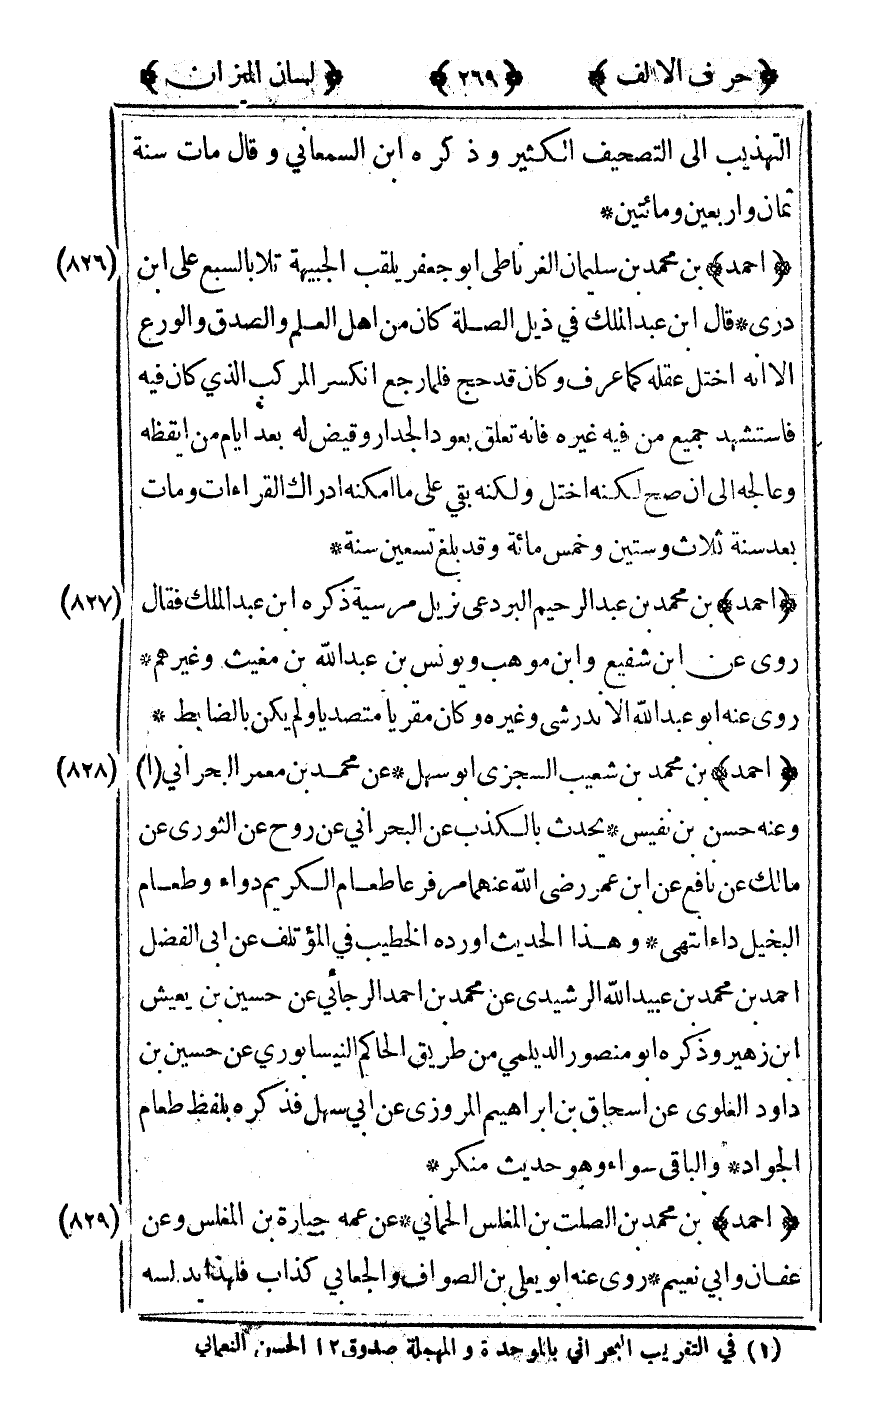 ﴿ حرف الالف ﴾ ﴿ ٢٦٩ ﴾ ﴿ لسان الميزان ﴾
التهذيب الى التصحيف الكثير و ذكره ابن السمعاني و قال مات سنة
ثمان واربعين ومائتين*
﴿ احمد ﴾ بن محمد بن سليمان الغرناطى ابو جعفر يلقب الجبيهة تلا بالسبع على ابن (٨٢٦)
درى* قال ابن عبد الملك في ذيل الصلة كان من اهل العلم والصدق والورع
الا انه اختل عقله كما عرف وكان قد حج فلما رجع انكسر المركب الذي كان فيه
فاستشهد جميع من فيه غيره فانه تعلق بعود الجدار وقيض له بعد ايام من ايقظه
وعالجه الى ان صح لكنه اختل ولكنه بقي على ما امكنه ادراك القراءات ومات
بعد سنة ثلاث وستين وخمس مائة وقد بلغ تسعين سنة*
﴿ احمد ﴾ بن محمد بن عبد الرحيم البردعى نزيل مرسية ذكره ابن عبد الملك فقال (٨٢٧)
روى عن ابن شفيع وابن موهب ويونس بن عبد الله بن مغيث وغيرهم*
روى عنه ابو عبد الله الاندرشى وغيره وكان مقريا متصديا ولم يكن بالضابط *
﴿ احمد ﴾ بن محمد بن شعيب السجزى ابو سهل* عن محمد بن معمر البحراني (١) (٨٢٨)
وعنه حسن بن نفيس* يحدث بالكذب عن البحراني عن روح عن الثورى عن
مالك عن نافع عن ابن عمر رضى الله عنهما مرفوعا طعام الكريم دواء وطعام
البخيل داء انتهى* و هذا الحديث اورده الخطيب في المؤتلف عن ابى الفضل
احمد بن محمد بن عبيد الله الرشيدى عن محمد بن احمد الرجائي عن حسين بن يعيش
ابن زهير وذكره ابو منصور الديلمي من طريق الحاكم النيسابوري عن حسين بن
داود العلوى عن اسحاق بن ابراهيم المروزى عن ابي سهل فذكره بلفظ طعام
الجواد* والباقى سواء وهو حديث منكر*
﴿ احمد ﴾ بن محمد بن الصلت بن المغلس الحماني* عن عمه جبارة بن المغلس وعن (٨٢٩)
عفان وابي نعيم* روى عنه ابو يعلى بن الصواف والجعابي كذاب فلهذا يدلسه
(١) في التقريب البحراني بالموحدة و المهملة صدوق ١٢ الحسن النعماني